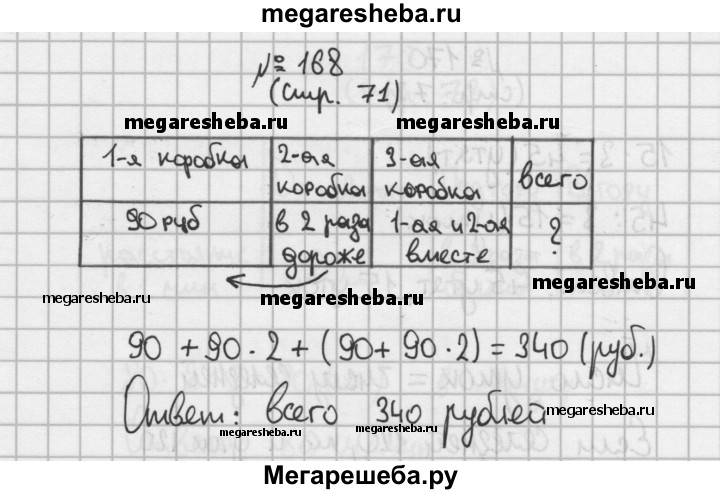 megaresheba.ru
№ 168
(Стр. 71)
megaresheba.ru megaresheba.ru
1-я коробка 2-ая коробка 3-ая коробка всего
90 руб в 2 раза дороже 1-ая и 2-ая вместе ?
megaresheba.ru megaresheba.ru megaresheba.ru
90 + 90 · 2 + (90 + 90 · 2) = 340 (руб.)
Ответ: всего 340 рублей
megaresheba.ru megaresheba.ru megaresheba.ru
Мегарешеба.ру